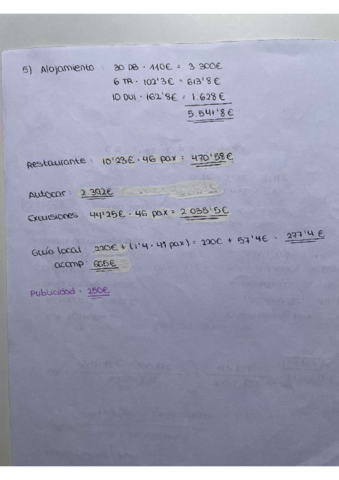 5) Alojamiento : 30 DB · 110€ = 3.300€
6 TR · 102'3€ = 613'8€
10 DUI · 162'8€ = 1.628€
5.541'8€
Restaurante : 10'23€ · 46 pax = 470'58€
Autocar : 2.392€
Excursiones 44'25€ · 46 pax = 2.035'5€
Guía local 220€ + (1'4 · 41 pax) = 220€ + 57'4€ = 277'4€
acomp: 665€
Publicidad : 250€